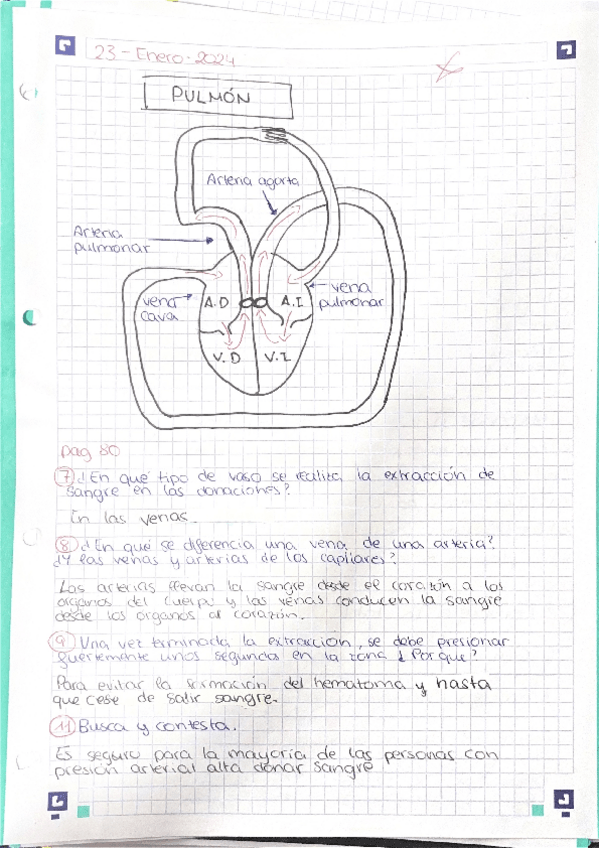 23-Enero-2024
PULMÓN
Arteria agorta
Arteria
pulmonar
vena
cava
A.D
A.I.
vena
pulmonar
V.D
V.I.
pag 80
7 ¿En qué tipo de vaso se realiza la extracción de
sangre en las donaciones?
En las venas.
8 ¿En qué se diferencia una vena de una arteria?
¿Y las venas y arterias de los capilares?
Las arterias llevan la sangre desde el corazón a los
órganos del cuerpo y las venas conducen la sangre
desde los órganos al corazón.
9 Una vez terminada la extracción, se debe presionar
fuertemente unos segundos en la zona ¿Por qué?
Para evitar la formación del hematoma y hasta
que cese de salir sangre.
11 Busca y contesta.
Es seguro para la mayoría de las personas con
presión arterial alta donar sangre